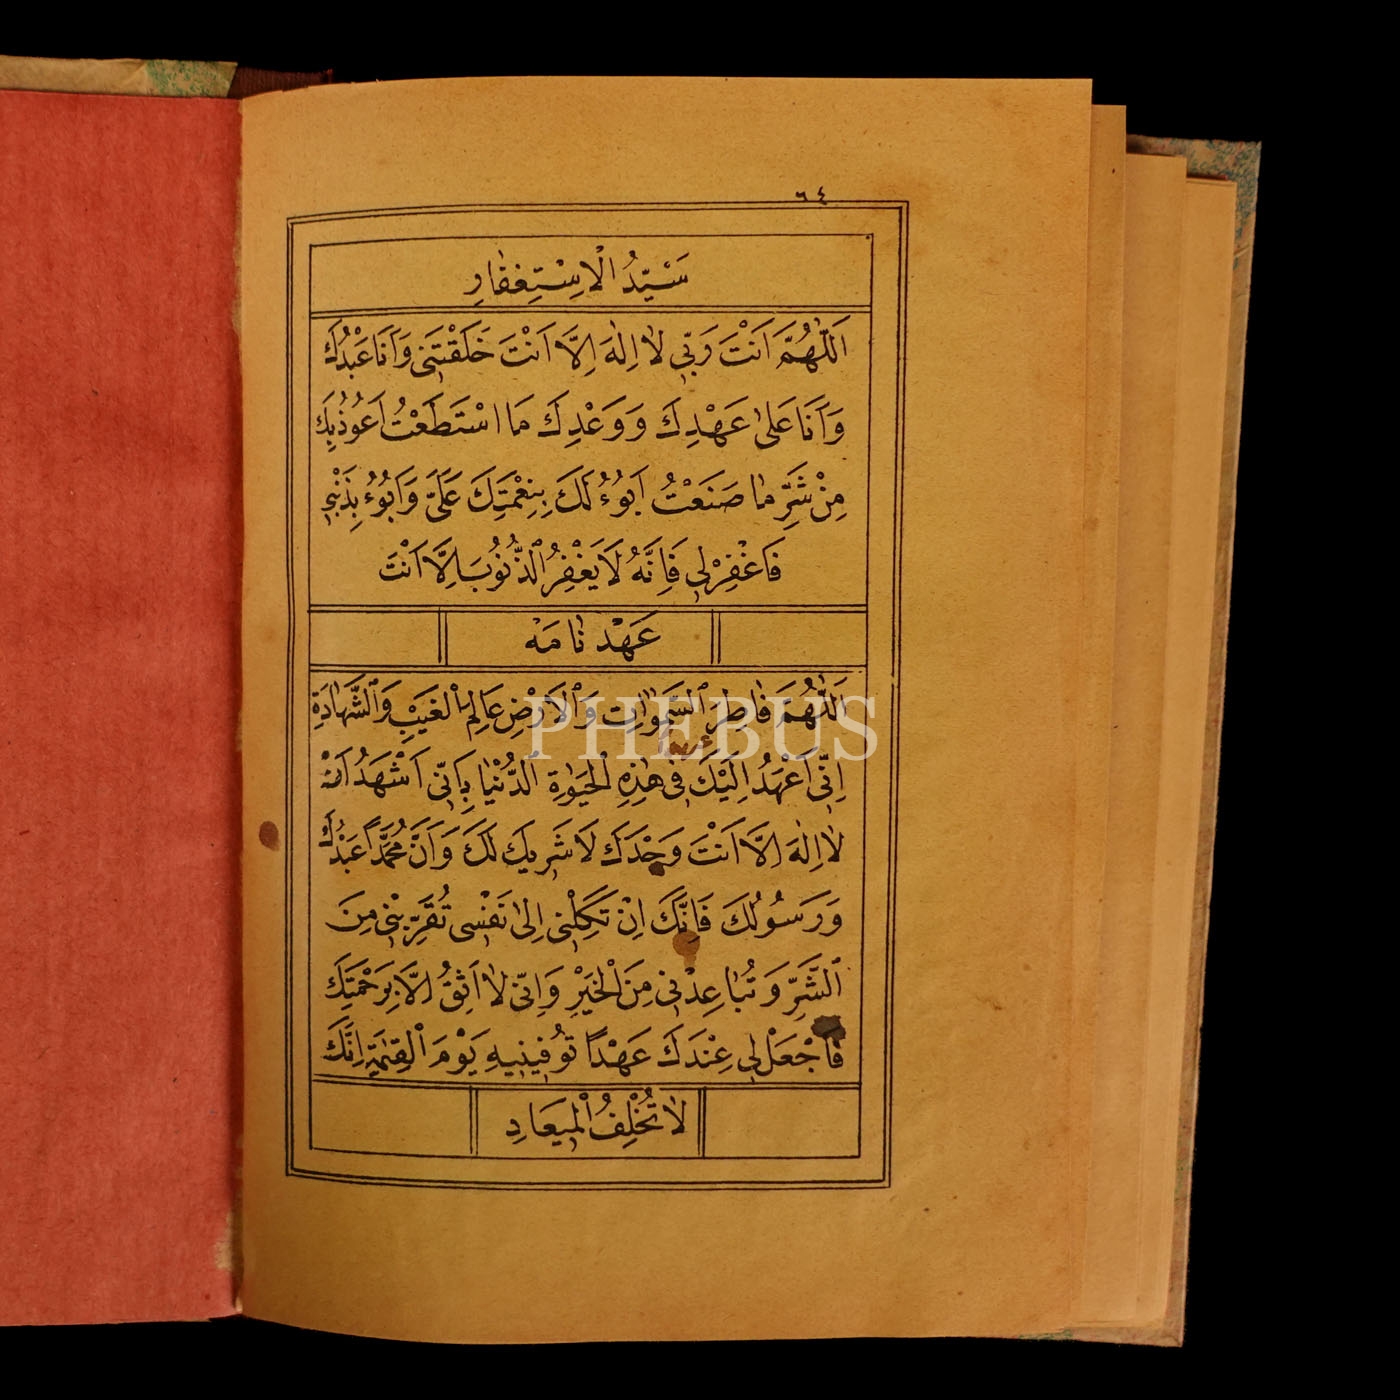 ٦٤
سَيِّدُ الْاِسْتِغْفَارِ
اَللّٰهُمَّ اَنْتَ رَبّ۪ي لَا اِلٰهَ اِلَّا اَنْتَ خَلَقْتَن۪ي وَاَنَا عَبْدُكَ
وَاَنَا عَلٰى عَهْدِكَ وَوَعْدِكَ مَا اسْتَطَعْتُ اَعُوذُ بِكَ
مِنْ شَرِّ مَا صَنَعْتُ اَبُوءُ لَكَ بِنِعْمَتِكَ عَلَيَّ وَاَبُوءُ بِذَنْب۪ي
فَاغْفِرْل۪ي فَاِنَّهُ لَا يَغْفِرُ الذُّنُوبَ اِلَّا اَنْتَ
عَهْدْ نَامَهْ
اَللّٰهُمَّ فَاطِرَ السَّمٰوَاتِ وَالْاَرْضِ عَالِمَ الْغَيْبِ وَالشَّهَادَةِ
PHEBUS
اِنّ۪ي اَعْهَدُ اِلَيْكَ ف۪ي هٰذِهِ الْحَيٰوةِ الدُّنْيَا بِاَنّ۪ي اَشْهَدُ اَنْ
لَا اِلٰهَ اِلَّا اَنْتَ وَحْدَكَ لَا شَر۪يكَ لَكَ وَاَنَّ مُحَمَّدًا عَبْدُكَ
وَرَسُولُكَ فَاِنَّكَ اِنْ تَكِلْن۪ي اِلٰى نَفْس۪ي تُقَرِّبْن۪ي مِنَ
الشَّرِّ وَتُبَاعِدْن۪ي مِنَ الْخَيْرِ وَاِنّ۪ي لَا اَثِقُ اِلَّا بِرَحْمَتِكَ
فَاجْعَلْ ل۪ي عِنْدَكَ عَهْدًا تُوَفّ۪ين۪يهِ يَوْمَ الْقِيٰمَةِ اِنَّكَ
لَا تُخْلِفُ الْم۪يعَادِ